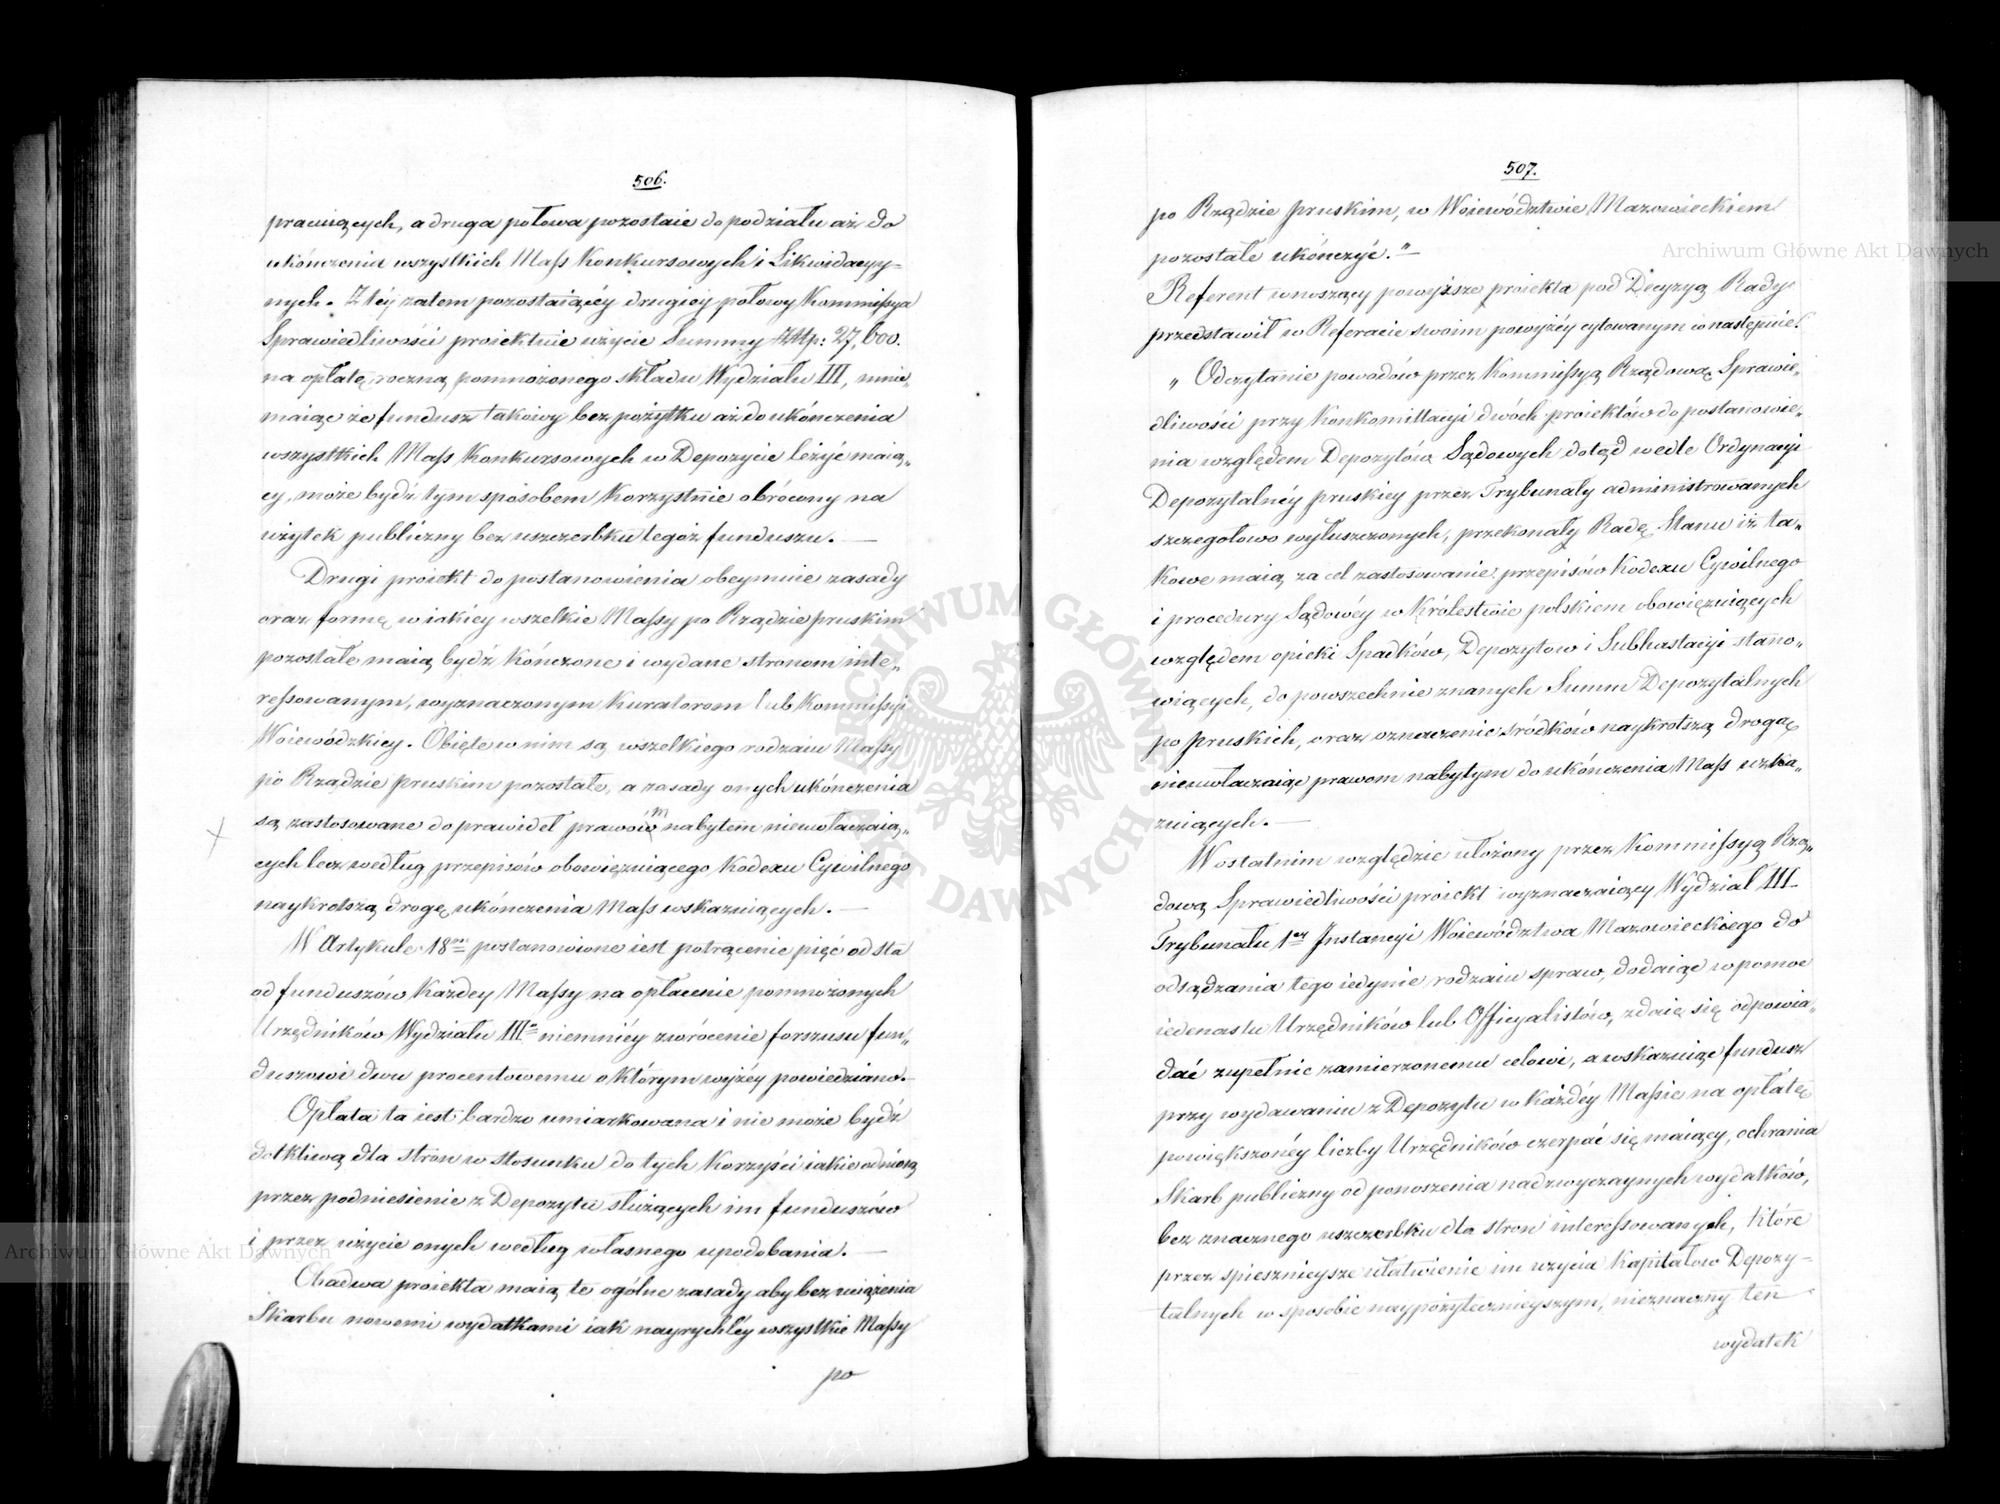 506.
pracuiących, a druga połowa pozostaie do podziału aż do
ukończenia wszystkich Mass Konkursowych i Likwidacyy-
nych. Z téy zatem pozostaiącéy drugiey połowy Kommissya
Sprawiedliwości proiektuie użycie Summy Złłp: 27,600.
na opłatę roczną pomnożonego składu Wydziału III, mnie-
maiąc że fundusz takowy bez pożytku aż do ukończenia
wszystkich Mass Konkursowych w Depozycie leżyć maią„
cy, może bydź tym sposobem korzystnie obrócony na
użytek publiczny bez uszczerbku tegoż funduszu. —
Drugi proiekt do postanowienia obeymuie zasady
oraz formę w iakiey wszelkie Massy po Rządzie pruskim
pozostałe maią bydź kończone i wydane stronom inte„
ressowanym, wyznaczonym Kuratorom lub Kommissyi
Woiewódzkiey. Obięte w nim są wszelkiego rodzaiu Massy
po Rządzie pruskim pozostałe, a zasady onych ukończenia
są zastosowane do prawideł prawom nabytem nieuwłaczaią„
cych lecz według przepisów obowięzuiącego Kodexu Cywilnego
naykrotszą drogę ukończenia Mass wskazuiących. —
W Artykule 18m postanowione iest potrącenie pięć od sta
od funduszów każdey Massy na opłacenie pomnożonych
Urzędników Wydziału III° niemniéy zwrócenie forszusu fun„
duszowi dwu procentowemu o którym wyżéy powiedziano. —
Opłata ta iest bardzo umiarkowana i nie może bydź
dotkliwą dla stron w stosunku do tych korzyści iakie odniosą
przez podniesienie z Depozytu służących im funduszów
i przez użycie onych według własnego upodobania. —
Obadwa proiekta maią te ogólne zasady aby bez uciążenia
Skarbu nowemi wydatkami iak nayrychléy wszystkie Massy
po
507.
po Rządzie pruskim, w Woiewództwie Mazowieckiem
pozostałe ukończyć." —
Referent wnoszący powyższe proiekta pod Decyzyą Rady
przedstawił w Referacie swoim powyżéy cytowanym co następuie:
„ Odczytanie powodów przez Kommissyą Rządową Sprawie„
dliwości przy Konkomittacyi dwóch proiektów do postanowie„
nia względem Depozytów Sądowych dotąd wedle Ordynacyi
Depozytalnéy pruskiey przez Trybunały administrowanych
szczegołowo wyłuszczonych, przekonały Radę Stanu iż ta„
kowe maią za cel zastosowanie przepisów Kodexu Cywilnego
i procedury Sądowéy w Królestwie polskiem obowięzuiących
względem opieki Spadków, Depozytow i Subhastacyi stano„
wiących, do powszechnie znanych Summ Depozytalnych
po pruskich, oraz oznaczenie śródków naykrotszą drogą
nieuwłaczaiąc prawom nabytym do ukończenia Mass wska„
zuiących. —
W ostatnim względzie ułożony przez Kommissyą Rzą„
dową Sprawiedliwości proiekt wyznaczaiący Wydział III
Trybunału 1ey Instancyi Woiewództwa Mazowieckiego do
odsądzania tego iedynie rodzaiu spraw, dodaiąc w pomoc
iedenastu Urzędników lub Officyalistów, zdaie się odpowia„
dać zupełnie zamierzonemu celowi, a wskazuiąc fundusz
przy wydawaniu z Depozytu w każdéy Massie na opłatę
powiększonéy liczby Urzędników czerpać się maiący, ochrania
Skarb publiczny od ponoszenia nadzwyczaynych wydatków,
bez znacznego uszczerbku dla stron interessowanych, które
przez spiesznieysze ułatwienie im użycia Kapitałow Depozy-
talnych w sposobie naypożytecznieyszym, nieznaczny ten
wydatek
Archiwum Główne Akt Dawnych
Archiwum Główne Akt Dawnych
ARCHIWUM GŁÓWNE AKT DAWNYCH